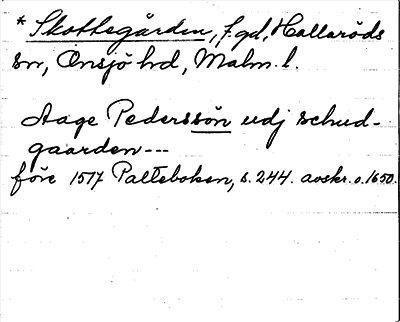 * Skottegården, f.gd, Hallaröds
sn, Onsjö hd, Malm. l.
Aage Pederssön udj schud-
gaarden---
före 1517 Palteboken, s. 244. avskr. o. 1650.